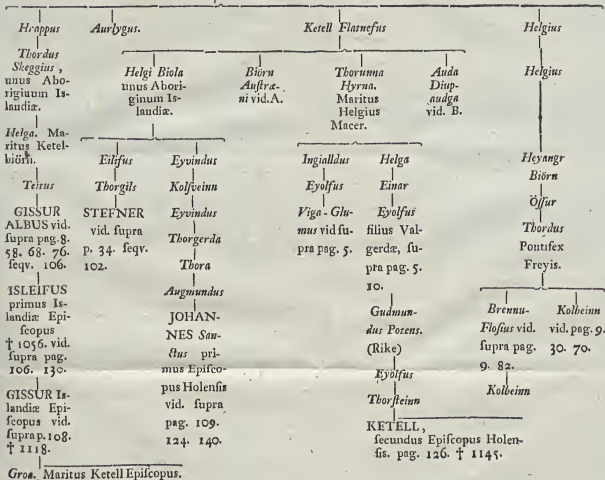 Hrappus
Thordus
Skeggius,
unus Abo-
riginum Is-
landiæ.
Helga. Ma-
ritus Ketel-
biörn.
Teitus
GISSUR
ALBUS vid.
supra pag. 8.
58. 68. 76.
seqv. 106.
ISLEIFUS
primus Is-
landiæ Epi-
scopus
† 1056. vid.
supra pag.
106. 130.
GISSUR Is-
landiæ Epi-
scopus vid.
supra p. 108.
† 1118.
Groa. Maritus Ketell Episcopus.
Aurlygus.
Ketell Flatnefus
Helgi Biola
unus Abori-
ginum Is-
landiæ.
Eilifus
Thorgils
STEFNER
vid. supra
p. 34. seqv.
102.
Eyvindus
Kolsveinn
Eyvindus
Thorgerda
Thora
Augmundus
JOHAN-
NES San-
ctus pri-
mus Episco-
pus Holensis
vid. supra
pag. 109.
124. 140.
Biörn
Austræ-
ni vid. A.
Thorunna
Hyrna.
Maritus
Helgius
Macer.
Ingialldus
Eyolfus
Viga-Glu-
mus vid su-
pra pag. 5.
Helga
Einar
Eyolfus
filius Val-
gerdæ, su-
pra pag. 5.
10.
Gudmun-
dus Potens.
(Rike)
Eyölfus
Thorsteinn
KETELL,
secundus Episcopus Holen-
sis. pag. 126. † 1145.
Auda
Diup-
audga
vid. B.
Helgius
Helgius
Heyangr
Biörn
Össur
Thordus
Pontifex
Freyis.
Brennu-
Flosius vid.
supra pag.
9. 82.
Kolbeinn
vid. pag. 9.
30. 70.
Kolbeinn